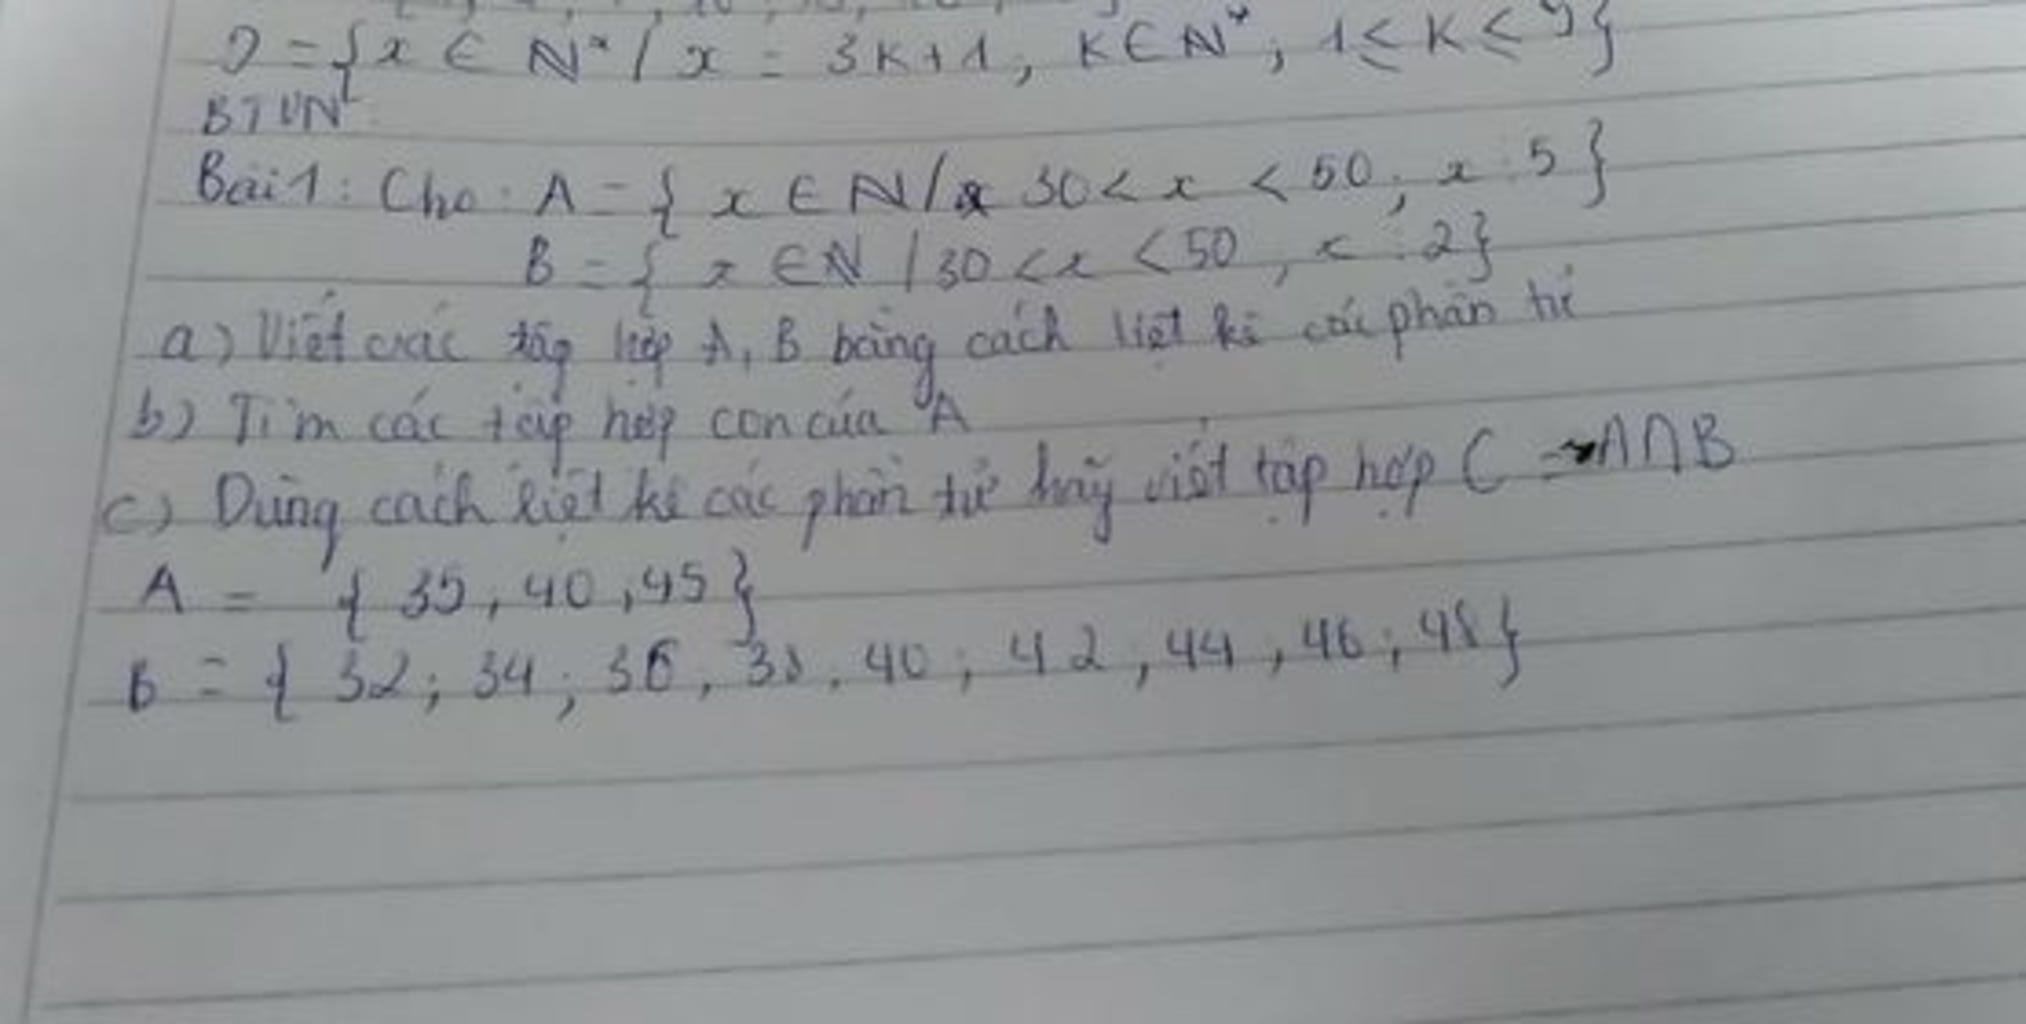 D = {x ∈ N* / x = 3K+1, K ∈ N*, 1 ≤ K ≤ 9}
BTVN
Bài 1: Cho: A = { x ∈ N / 30 < x < 50; x ⋮ 5 }
B = { x ∈ N / 30 < x < 50, x ⋮ 2}
a) Viết các tập hợp A, B bằng cách liệt kê các phần tử
b) Tìm các tập hợp con của A
c) Dùng cách liệt kê các phần tử hãy viết tập hợp C = A∩B
A = { 35, 40, 45 }
B = { 32; 34; 36, 38, 40; 42, 44, 46; 48}